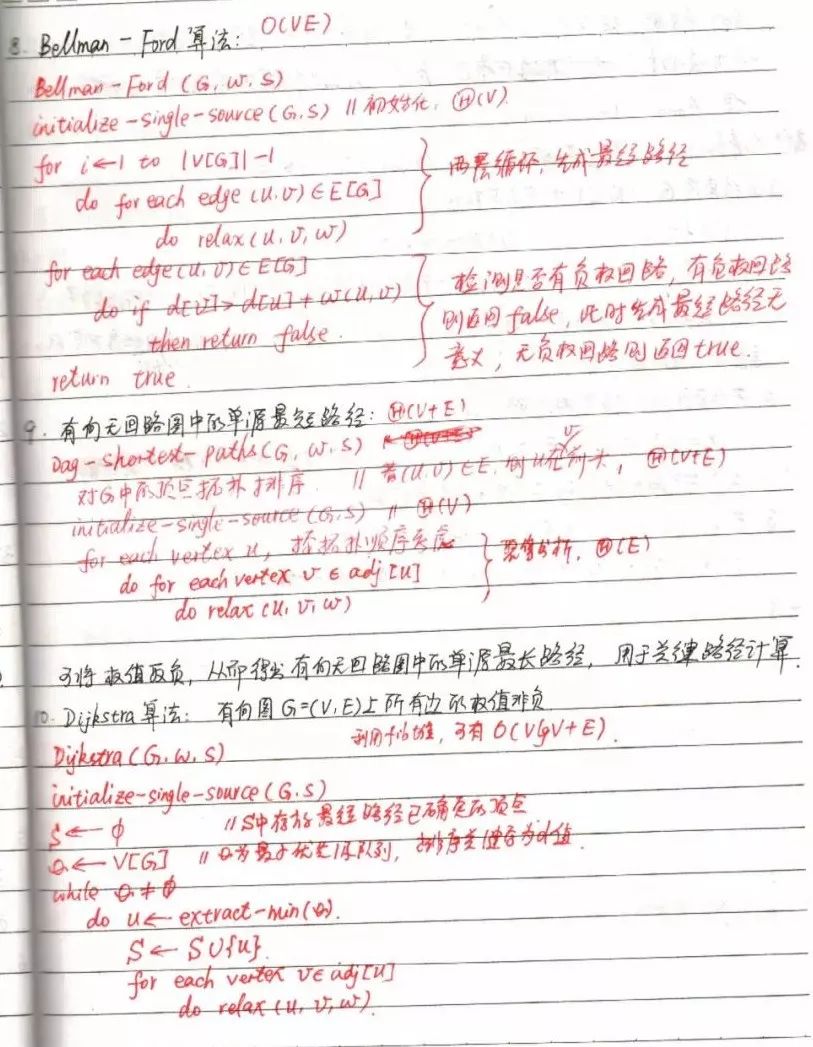 8. Bellman-Ford 算法: O(VE)
Bellman-Ford (G, w, s)
initialize-single-source (G, s) // 初始化, Ⓗ(V)
for i←1 to |V[G]|-1
do for each edge (u, v) ∈ E[G]
do relax (u, v, w)
两层循环, 生成最短路径
for each edge (u, v) ∈ E[G]
do if d[v] > d[u] + w(u, v)
then return false.
return true
检测是否有负权回路, 有负权回路
则返回 false, 此时生成最短路径无
意义; 无负权回路则返回 true.
9. 有向无回路图中的单源最短路径: Ⓗ(V+E)
Dag-shortest-paths (G, w, s)
对G中的顶点拓扑排序 // 若(u, v) ∈ E, 则u在v前头, Ⓗ(V+E)
initialize-single-source (G, s) // Ⓗ(V)
for each vertex u, 按拓扑顺序考虑
do for each vertex v ∈ adj [u]
do relax (u, v, w)
聚集分析, Ⓗ(E)
可将权值取负, 从而得出有向无回路图中的单源最长路径, 用于关键路径计算.
10. Dijkstra 算法: 有向图 G=(V, E)上所有边的权值非负
利用fib堆, 可有 O(VlgV+E).
Dijkstra (G, w, s)
initialize-single-source (G, s)
S ← ϕ // S中存放最短路径已确定的顶点
Q ← V[G] // Q为最小优先队列, 排序关键字为d值.
while Q ≠ ϕ
do u ← extract-min(Q).
S ← S∪{u}.
for each vertex v ∈ adj [u]
do relax (u, v, w).